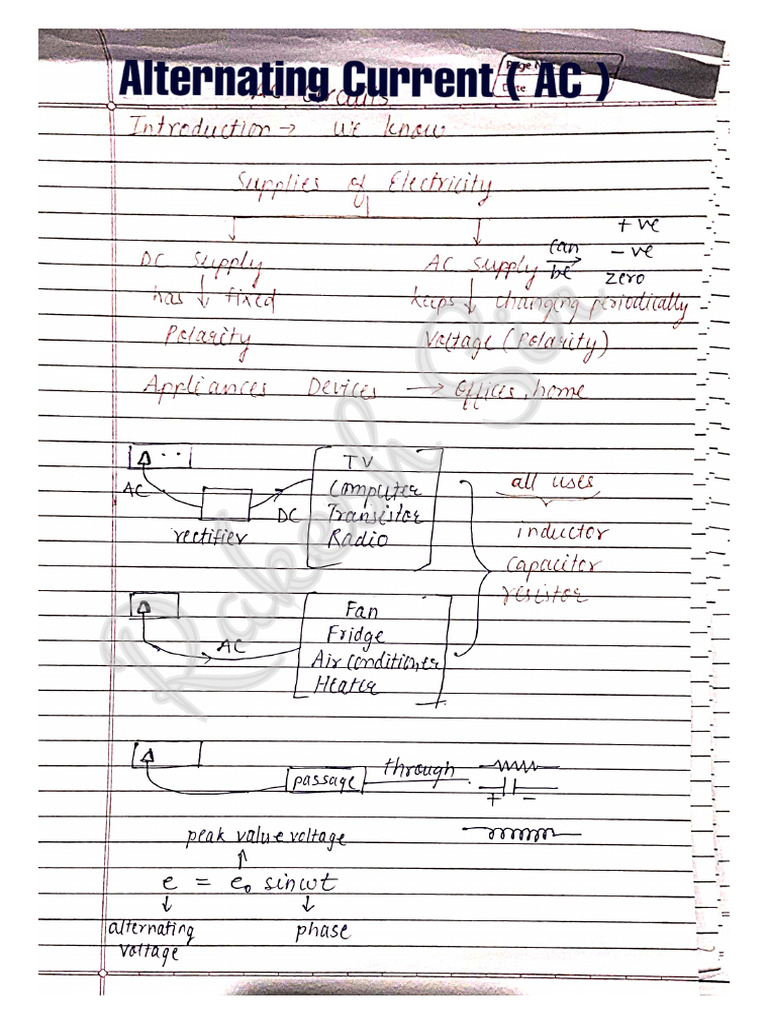 Alternating Current ( AC )
Page No.
Date
AC Circuits
Introduction → we know
Supplies of Electricity
DC Supply
has fixed
Polarity
AC Supply can be → +ve
-ve
zero
keeps changing periodically
Voltage (Polarity)
Appliances Devices → offices, home
AC
rectifier
DC
TV
Computer
Transistor
Radio
all uses
inductor
capacitor
resistor
AC
Fan
Fridge
Air conditioner
Heater
passage through
+ -
peak value voltage
e = e₀ sinwt
alternating voltage
phase
Rakesh Sir